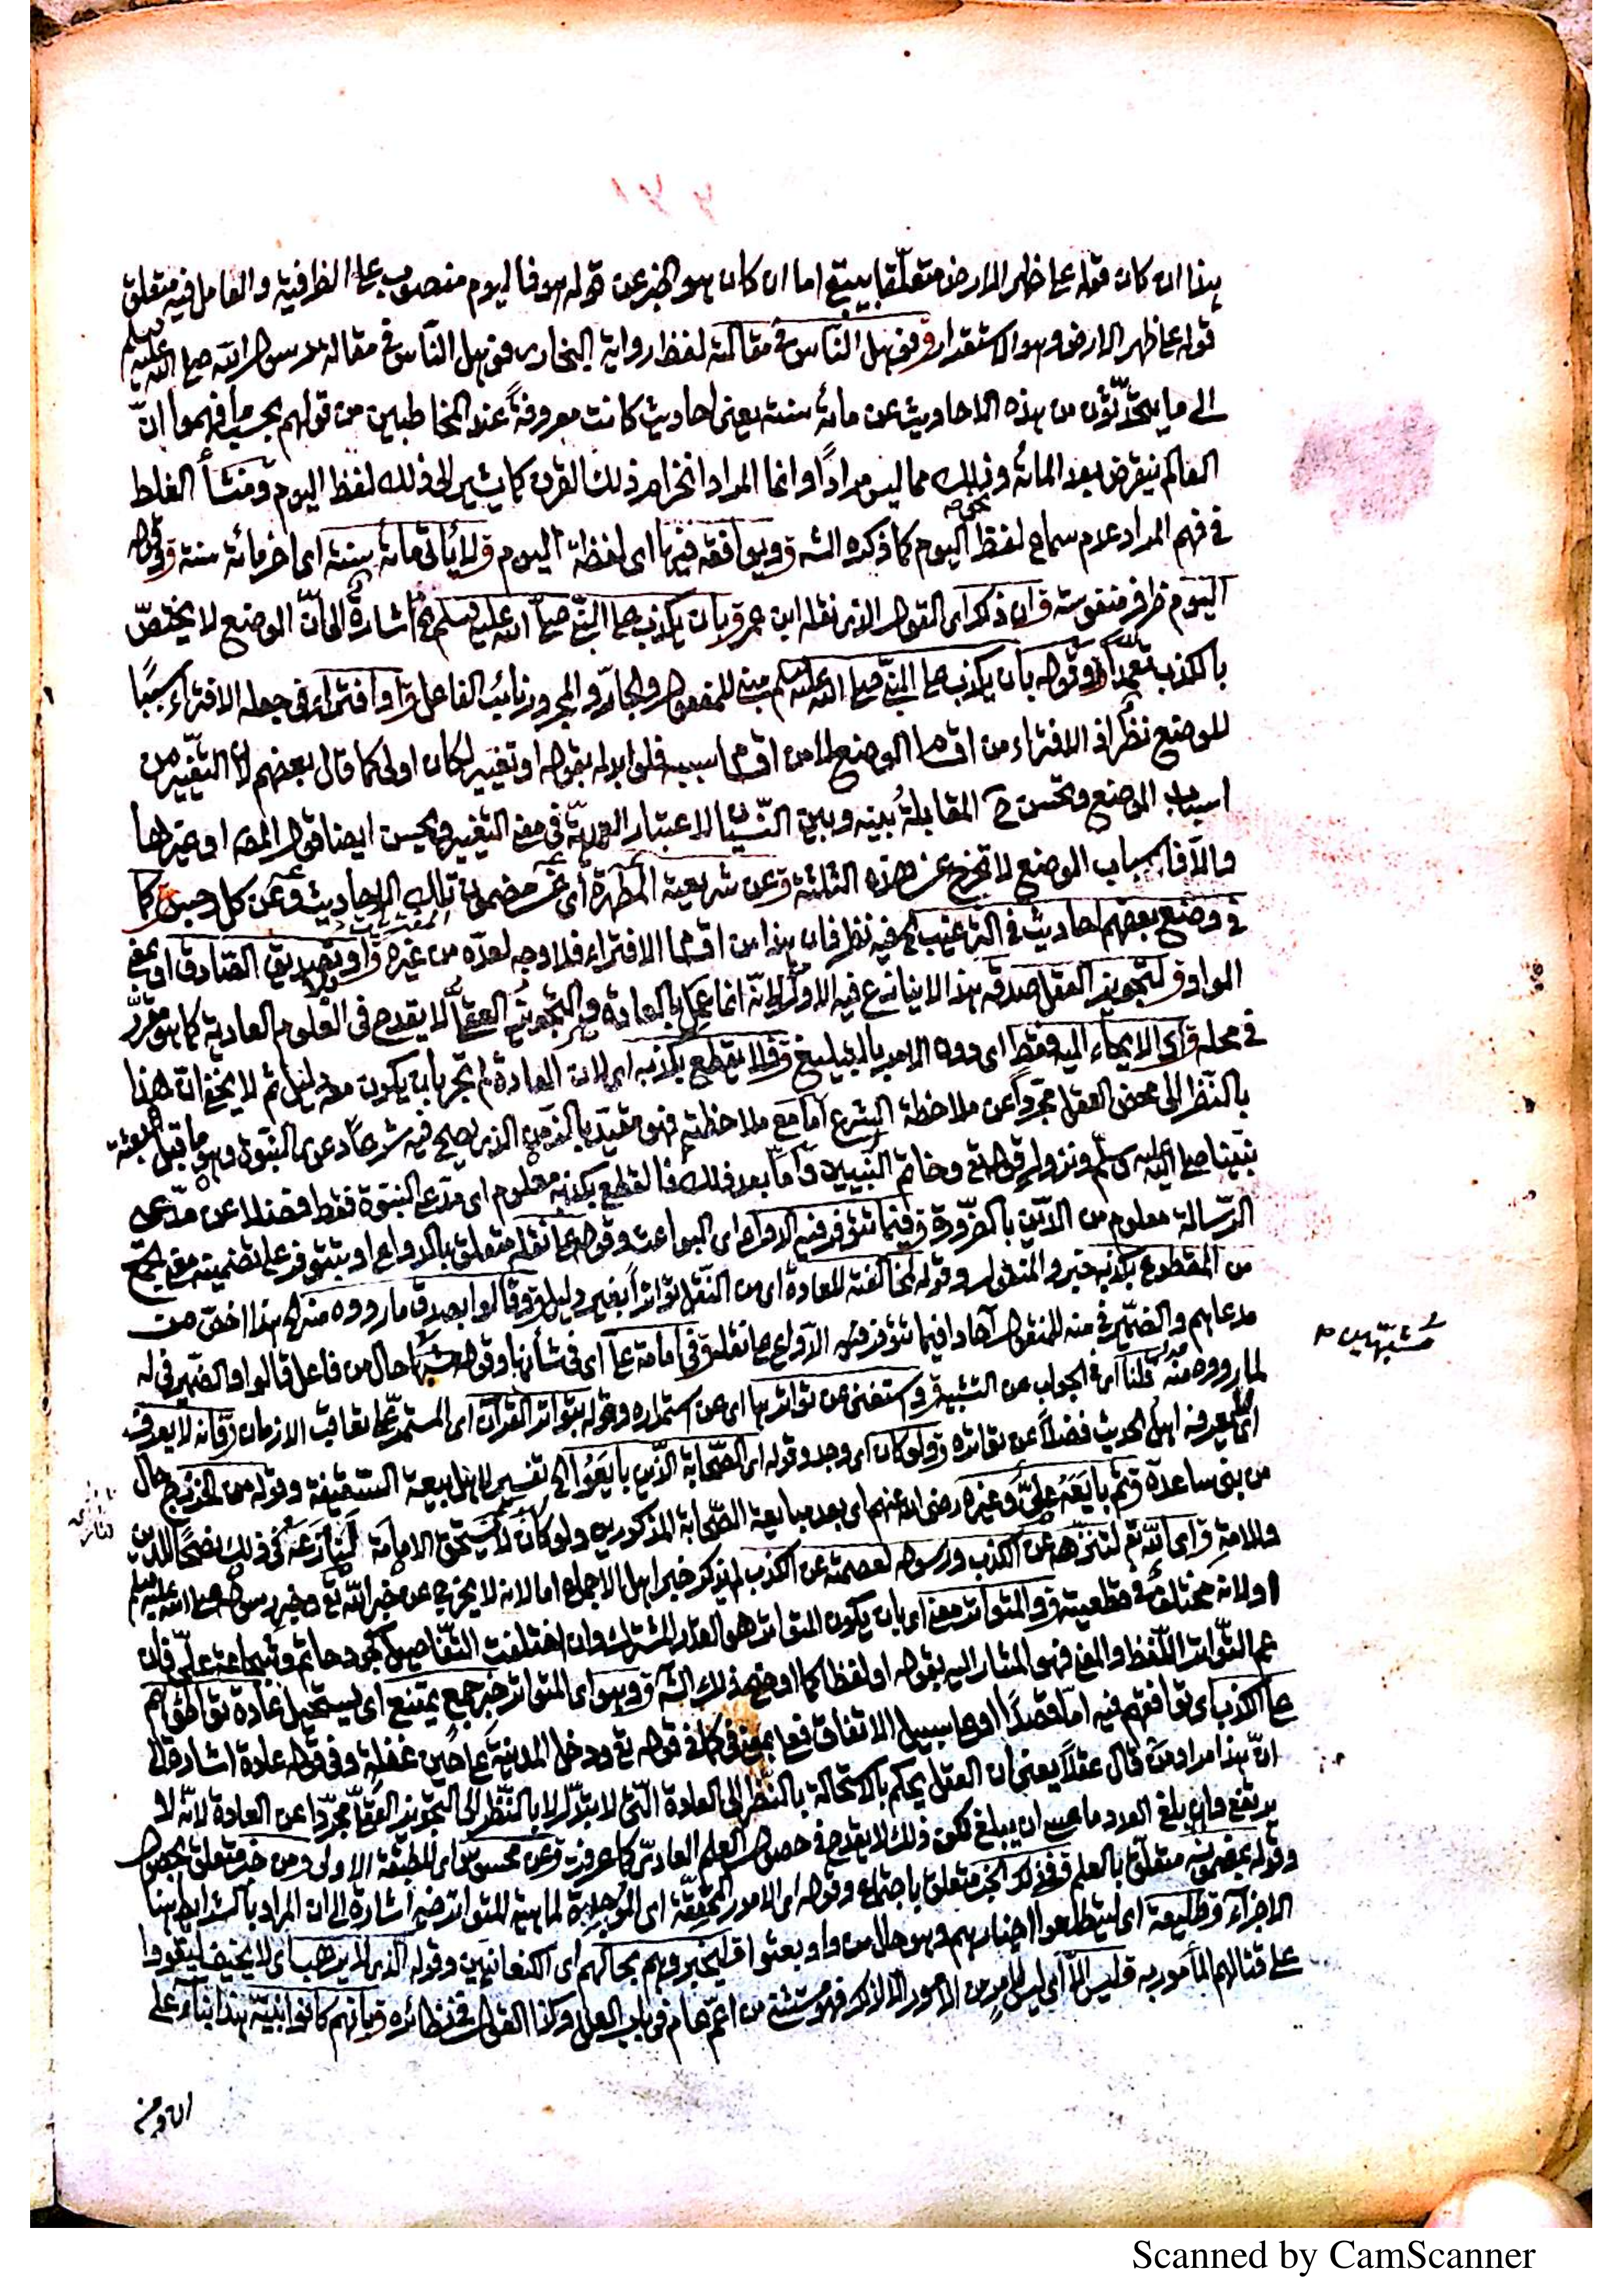 هذا ان كان قوله على ظهر الارض متعلقا بيبقى اما ان كان هو الخبر عن قوله هو فاليوم منصوب على الظرفية والعامل فيه متعلق
قوله على ظهر الارض وهو الاستقرار ق فوهل الناس في مقالة لفظ رواية البخاري فوهل الناس في مقالة رسول الله صلى الله عليه وسلم
الى ما يتحدثون من هذه الاحاديث عن مائة سنة يعني احاديث كانت معروفة عند المخاطبين من قولهم بحسب ما فهموا انّ
العالم ينقرض بعد المائة وذلك مما ليس مرادًا وانما المراد انخرام ذلك القرن كما يشير الى ذلك لفظ اليوم ومنشأ الغلط
في فهم المراد عدم سماع لفظ اليوم كما ذكره الشه ق ويوافقه فيها اى لفظة اليوم ق لا يأتي مائة سنة اى اخر مائة سنة ق وقوله
اليوم ظرف منفوسة ق ان ذكر اى المقول الذى نقله ابن عمر ق بان يكذب على النبي صلى الله عليه وسلم اشارة الى انّ الوضع لا يختصّ
بالكذب تعمّدًا وقوله بأن يكذب على النبي صلى الله عليه وسلم مبني للمفعول والجارّ والمجرور نائب الفاعل ق او افتراء في جعله الافتراء سببًا
للوضع نظر اذ الافتراء من اقسام الوضع لا من اقسام سببه فلو ابدله بقوله او تغيير لكان اولى كما قال بعضهم لأن التغيير من
اسباب الوضع وتحسن ح المقابلة بينه وبين النسيان لاعتبار العمدية في معنى التغيير ويحسن ايضا قول المصه او غيرها
والّا فاسباب الوضع لا تخرج عن هذه الثلثة ق عن شريعته المطهرة أى عن مضمون تلك الاحاديث ق عن كل حسن كما
في وضع بعضهم احاديث في الترغيب فيه نظر فان هذا من اقسام الافتراء فلا وجه لعدّه من غيره ق او تصديق الصادق او بمعنى
الواو ق لتجويز العقل صدقه هذا لا ينازع فيه الاول لانّه انما عمل بالعادة والتجويز العقلي لا يقدح في العلوم العادية كما هو مقرّر
في محله ق اى الايحاء اليه فقط اى دون الامر بالتبليغ ق فلا يقطع بكذبه اى لان العادة لم تجر بأن يكون معه دليل ثم لا يخفى انّ هذا
بالنّظر الى محض العقل مجردًا عن ملاحظة الشرع أما مع ملاحظته فهو مقيّد بالزمن الذى يصح فيه شرعًا دعوى النبوة وهو ما قبل بعثة
نبيّنا صلى الله عليه وسلم ونزول قوله تع وخاتم النبيين وأمّا بعد ذلك فالقطع بكذبه معلوم اى مدعى النبوة فقط فضلا عن مدّعى
الرّسالة معلوم من الدّين بالضرورة ق فيما تتوفر فيه الدواعى اى البواعث وقوله على نقله متعلق بالدواعى او بتتوفر على تضمينه معنى يجمع
من المقطوع بكذبه خبر والمنقول وقوله لمخالفته للعادة اى من النقل تواترًا بغير دليل ق وقالوا بصدق ما رووه منه هذا اخصّ من
مدعاهم والضّمير في منه للمنقول آحادا فيما تتوفر فيه الدّواعى على نقله ق في امامة على اى في شأنها وقوله مشبّهًا حال من فاعل قالوا والضّمير في له
لما رووه منه ق قلنا اى في الجواب عن التشبيه ق واستغنى عن تواترها اى عن استمراره وقوله بتواتر القرآن اى المستمر على تعاقب الازمان ق فانه لا يعرف
اى يعرفه اهل الحديث فضلًا عن تواتره ق ولو كان اى وجد وقوله اى الصحابة الّذين بايعوا الخ تفسير لاهل بيعة السّقيفة وقوله من الخزرج حال
من بنى ساعدة ق ثم بايعه علىّ وغيره رضى الله عنهم اى بعد مبايعة الصحابة المذكورين ولو كان لا يستحق الامامة لنازعه في ذلك نصحًا للدين
وللامة ق اى الله تع لتنزّهه عن الكذب ورسوله لعصمته عن الكذب لم يذكر خبر اهل الاجماع اما لانه لا يخرج عن خبر الله تع وخبر رسوله صلى الله عليه وسلم
او لانه مختلف في قطعيته ق والمتواتر معنى اى بان يكون المتواتر هو القدر المشترك وان اختلفت التفاصيل كجود حاتم وشجاعة علىّ فان
عم التّواتر اللّفظ والمعنى فهو المشار اليه بقوله او لفظا كما اوضح ذلك الشه ق وهو اى المتواتر خبر جمع يمتنع اى يستحيل عادة تواطؤهم
على الكذب اى توافقهم فيه امّا قصدًا او على سبيل الاتفاق فعلى بمعنى في كما في قوله تع ودخل المدينة على حين غفلة وفى قوله عادة اشارة الى
انّ هذا مراد من قال عقلًا يعنى ان العقل يحكم بالاستحالة بالنّظر الى العادة الّتى لا تتبدّل لا بالنّظر الى التجويز العقلىّ مجرّدا عن العادة لانّه لا
يرتفع وان بلغ العدد ما عسى ان يبلغ لكن ذلك لا يقدح في حصول العلم العادىّ كما عرفت ق عن محسوس اى للطبقة الاولى ومن خبر متعلق بحصول
وقوله بمضمونه متعلق بالعلم ق فذلك الخبر متعلق باجتماع وقوله اى الامور المحقّقة اى الموجدة لماهية المتواتر فيه اشارة الى ان المراد بالشرائط هنا
الاجزاء ق طليعة اى ليتطلعوا اخبارهم وهو حال من واو بعثوا ق ليخبروهم بحالهم اى الكنعانيين وقوله الذى لا يرهب اى لا يخيف ليقووا
على قتالهم المأمور به ق ليس الّا اى ليس لامر من الامور الا لذلك فهو مستثنى من اعمّ عام في باب العلل وكذا القول في نظائره ق بانهم كانوا نيبّة هذا بناء على
Scanned by CamScanner